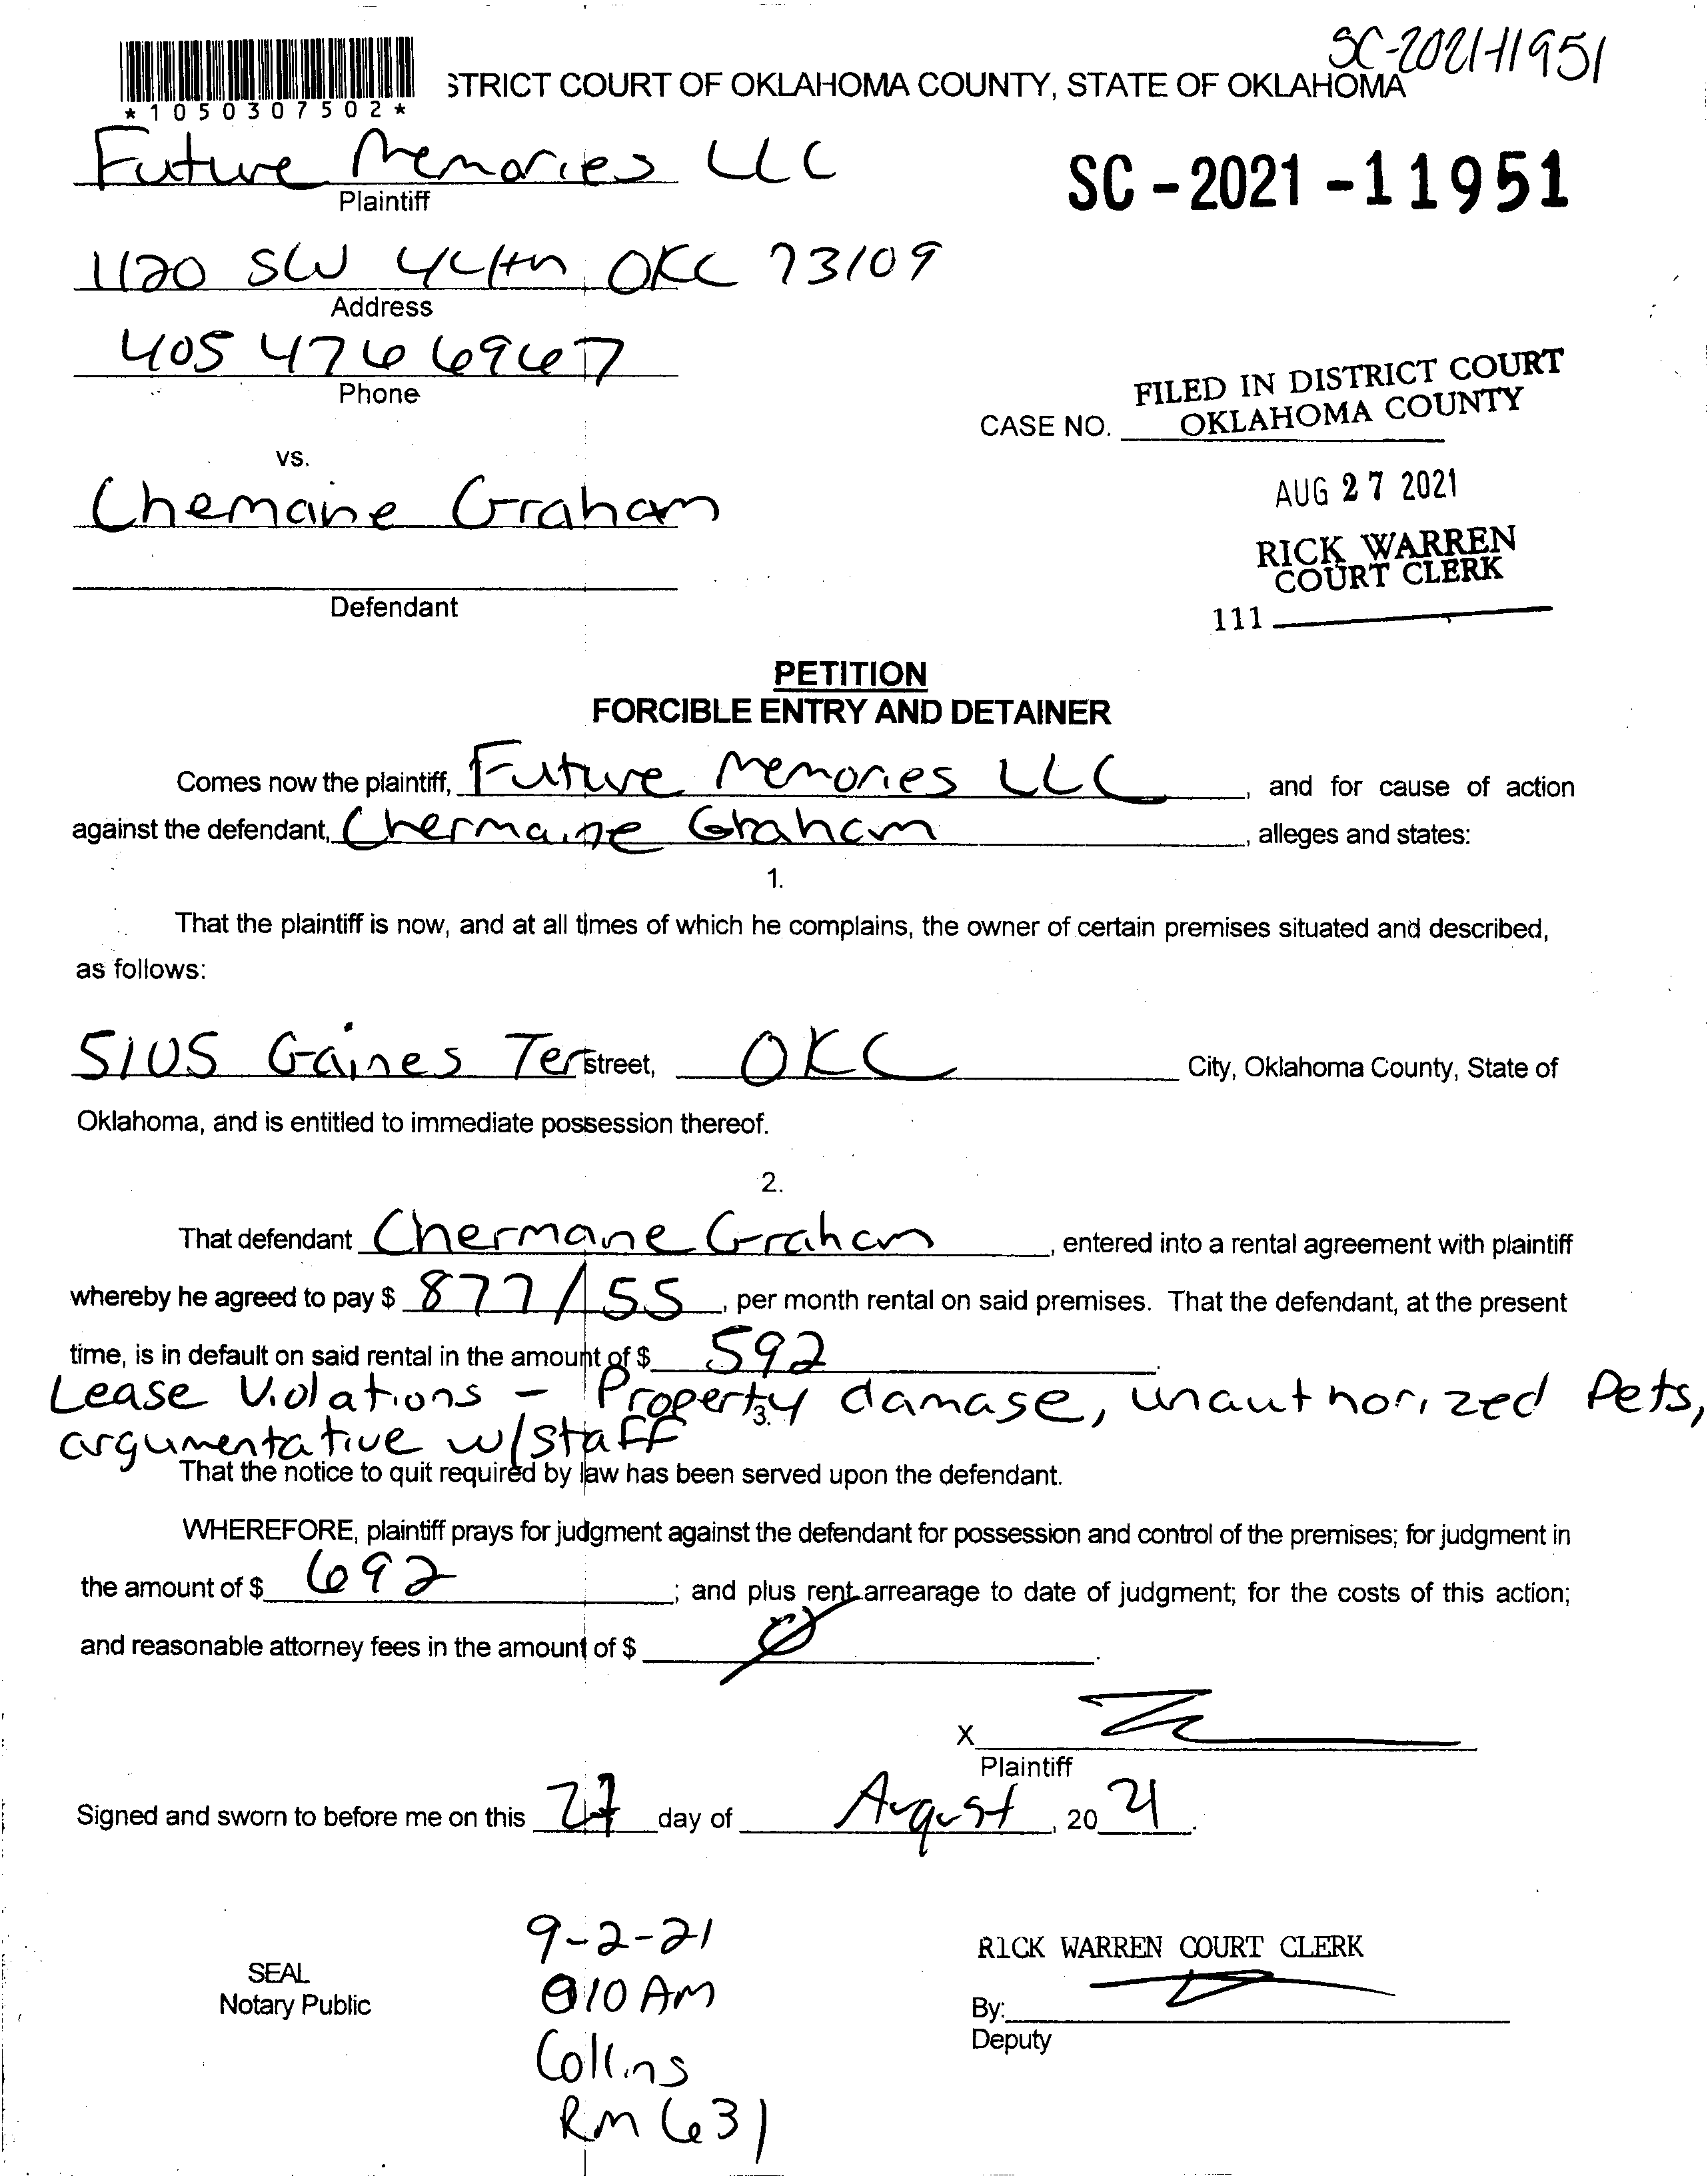 SC-2021-11951
*1050307502*
STRICT COURT OF OKLAHOMA COUNTY, STATE OF OKLAHOMA
Future Memories LLC
Plaintiff
SC-2021-11951
1120 SW 44th OKC 73109
Address
405 476 6967
Phone
FILED IN DISTRICT COURT
OKLAHOMA COUNTY
CASE NO.
vs.
AUG 27 2021
Chemaine Graham
RICK WARREN
COURT CLERK
Defendant
111
PETITION
FORCIBLE ENTRY AND DETAINER
Comes now the plaintiff, Future Memories LLC, and for cause of action
against the defendant, Chermaine Graham, alleges and states:
1.
That the plaintiff is now, and at all times of which he complains, the owner of certain premises situated and described,
as follows:
5105 Gaines Ter street, OKC City, Oklahoma County, State of
Oklahoma, and is entitled to immediate possession thereof.
2.
That defendant Chermaine Graham, entered into a rental agreement with plaintiff
whereby he agreed to pay $ 877/55, per month rental on said premises. That the defendant, at the present
time, is in default on said rental in the amount of $ 592.
Lease Violations - Property damage, unauthorized Pets,
3.
argumentative w/staff
That the notice to quit required by law has been served upon the defendant.
WHEREFORE, plaintiff prays for judgment against the defendant for possession and control of the premises; for judgment in
the amount of $ 692; and plus rent arrearage to date of judgment; for the costs of this action;
and reasonable attorney fees in the amount of $ Ø.
X
Plaintiff
Signed and sworn to before me on this 27 day of August, 2021.
9-2-21
RICK WARREN COURT CLERK
SEAL
Notary Public
@10 AM
By:
Deputy
Collins
Rm 631